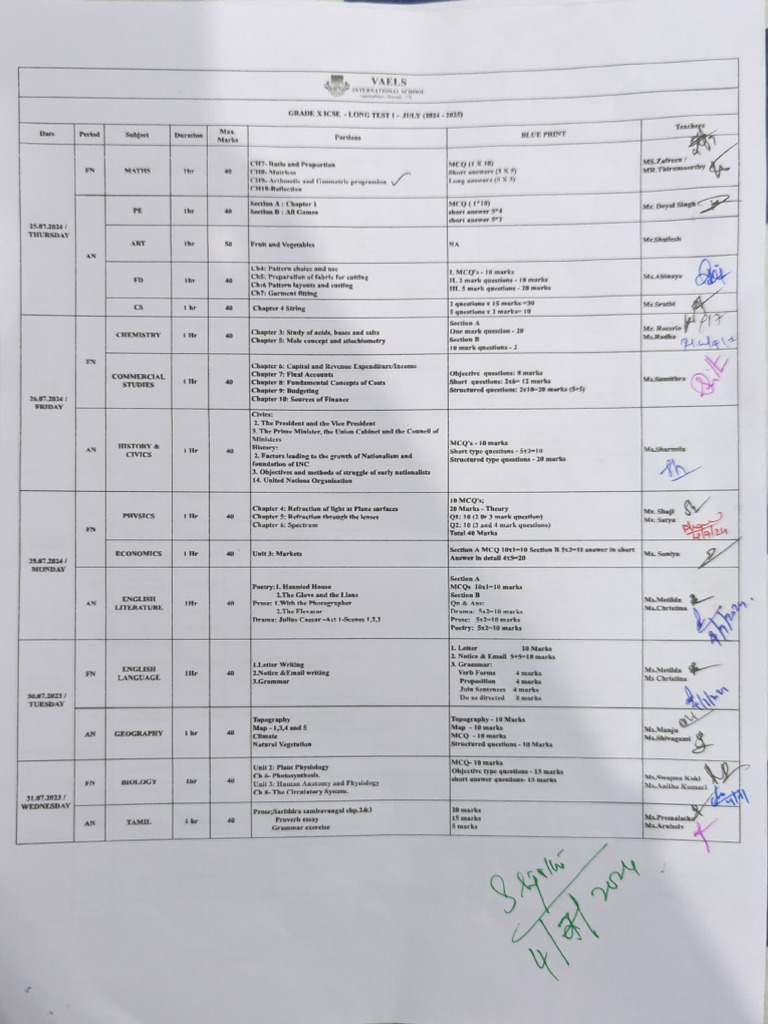 VAELS
INTERNATIONAL SCHOOL
GRADE X ICSE - LONG TEST 1 - JULY (2024 - 2025)
Date Period Subject Duration Max. Marks Portions BLUE PRINT Teachers
25.07.2024 / THURSDAY
FN MATHS 1hr 40
CH7- Ratio and Proportion
CH8- Matrices
CH9- Arithmatic and Geometric progression
CH10-Reflection
MCQ (1 X 10)
Short answers (5 X 3)
Long answers (5 X 3)
MS.Zafreen /
MR.Thirumoorthy
AN
PE 1hr 40
Section A : Chapter 1
Section B : All Games
MCQ ( 1*10)
short answer 5*4
short answer 5*2
Mr. Deyal Singh
ART 1hr 50 Fruit and Vegetables NA Mr.Shailesh
FD 1hr 40
Ch4: Pattern choice and use
Ch5: Preparation of fabric for cutting
Ch:6 Pattern layouts and cutting
Ch7: Garment fitting
I. MCQ's - 10 marks
II. 2 mark questions - 10 marks
III. 5 mark questions - 20 marks
Ms.Abinaya
CS 1 hr 40 Chapter 4 String
2 questions x 15 marks =30
5 questions x 2 marks= 10
Ms Sruthi
26.07.2024 / FRIDAY
FN
CHEMISTRY 1 Hr 40
Chapter 3: Study of acids, bases and salts
Chapter 5: Mole concept and stiochiometry
Section A
One mark question - 20
Section B
10 mark questions - 2
Ms.Radha
COMMERCIAL STUDIES 1 Hr 40
Chapter 6: Capital and Revenue Expenditure/Income
Chapter 7: Final Accounts
Chapter 8: Fundamental Concepts of Costs
Chapter 9: Budgeting
Chapter 10: Sources of Finance
Objective questions: 8 marks
Short questions: 2x6= 12 marks
Structured questions: 2x10=20 marks (5+5)
Ms.Sumithra
AN HISTORY & CIVICS 1 Hr 40
Civics:
2. The President and the Vice President
3. The Prime Minister, the Union Cabinet and the Council of
Ministers
History:
2. Factors leading to the growth of Nationalism and
foundation of INC
3. Objectives and methods of struggle of early nationalists
14. United Nations Organisation
MCQ's - 10 marks
Short type questions - 5x2=10
Structured type questions - 20 marks
Ms.Sharmila
29.07.2024 / MONDAY
FN
PHYSICS 1 Hr 40
Chapter 4: Refraction of light at Plane surfaces
Chapter 5: Refraction through the lenses
Chapter 6: Spectrum
10 MCQ's;
20 Marks - Theory
Q1: 10 (2 0r 3 mark question)
Q2: 10 (3 and 4 mark questions)
Total 40 Marks
Mr. Shaji
Mr. Satya
4/7/24
ECONOMICS 1 Hr 40 Unit 3: Markets
Section A MCQ 10x1=10 Section B 5x2=10 answer in short
Answer in detail 4x5=20
Ms. Soniya
AN ENGLISH LITERATURE 1Hr 40
Poetry:1. Haunted House
2.The Glove and the Lions
Prose: 1.With the Photographer
2.The Elevator
Drama: Julius Caesar -Act 1-Scenes 1,2,3
Section A
MCQs 10x1=10 marks
Section B
Qn & Ans:
Drama: 5x2=10 marks
Prose: 5x2=10 marks
Poetry: 5x2=10 marks
Ms.Matilda
Ms.Christina
30.07.2023 / TUESDAY
FN ENGLISH LANGUAGE 1Hr 40
1.Letter Writing
2.Notice &Email writing
3.Grammar
1. Letter 10 Marks
2. Notice & Email 5+5=10 marks
3. Grammar:
Verb Forms 4 marks
Preposition 4 marks
Join Sentences 4 marks
Do as directed 8 marks
Ms.Matilda
Ms Christina
AN GEOGRAPHY 1 hr 40
Topography
Map - 1,3,4 and 5
Climate
Natural Vegetation
Topography - 10 Marks
Map - 10 marks
MCQ - 10 marks
Structured questions - 10 Marks
Ms.Manju
Ms.Shivagami
31.07.2023 / WEDNESDAY
FN BIOLOGY 1hr 40
Unit 2: Plant Physiology
Ch 6- Photosynthesis.
Unit 3: Human Anatomy and Physiology
Ch 8- The Circulatory System.
MCQ- 10 marks
Objective type question - 15 marks
short answer questions- 15 marks
Ms.Swapna Koki
Ms.Anitha Kumari
AN TAMIL 1 hr 40
Prose;Sarithira sambavangal chp.2&3
Proverb essay
Grammar exercise
20 marks
15 marks
5 marks
4/7/2024